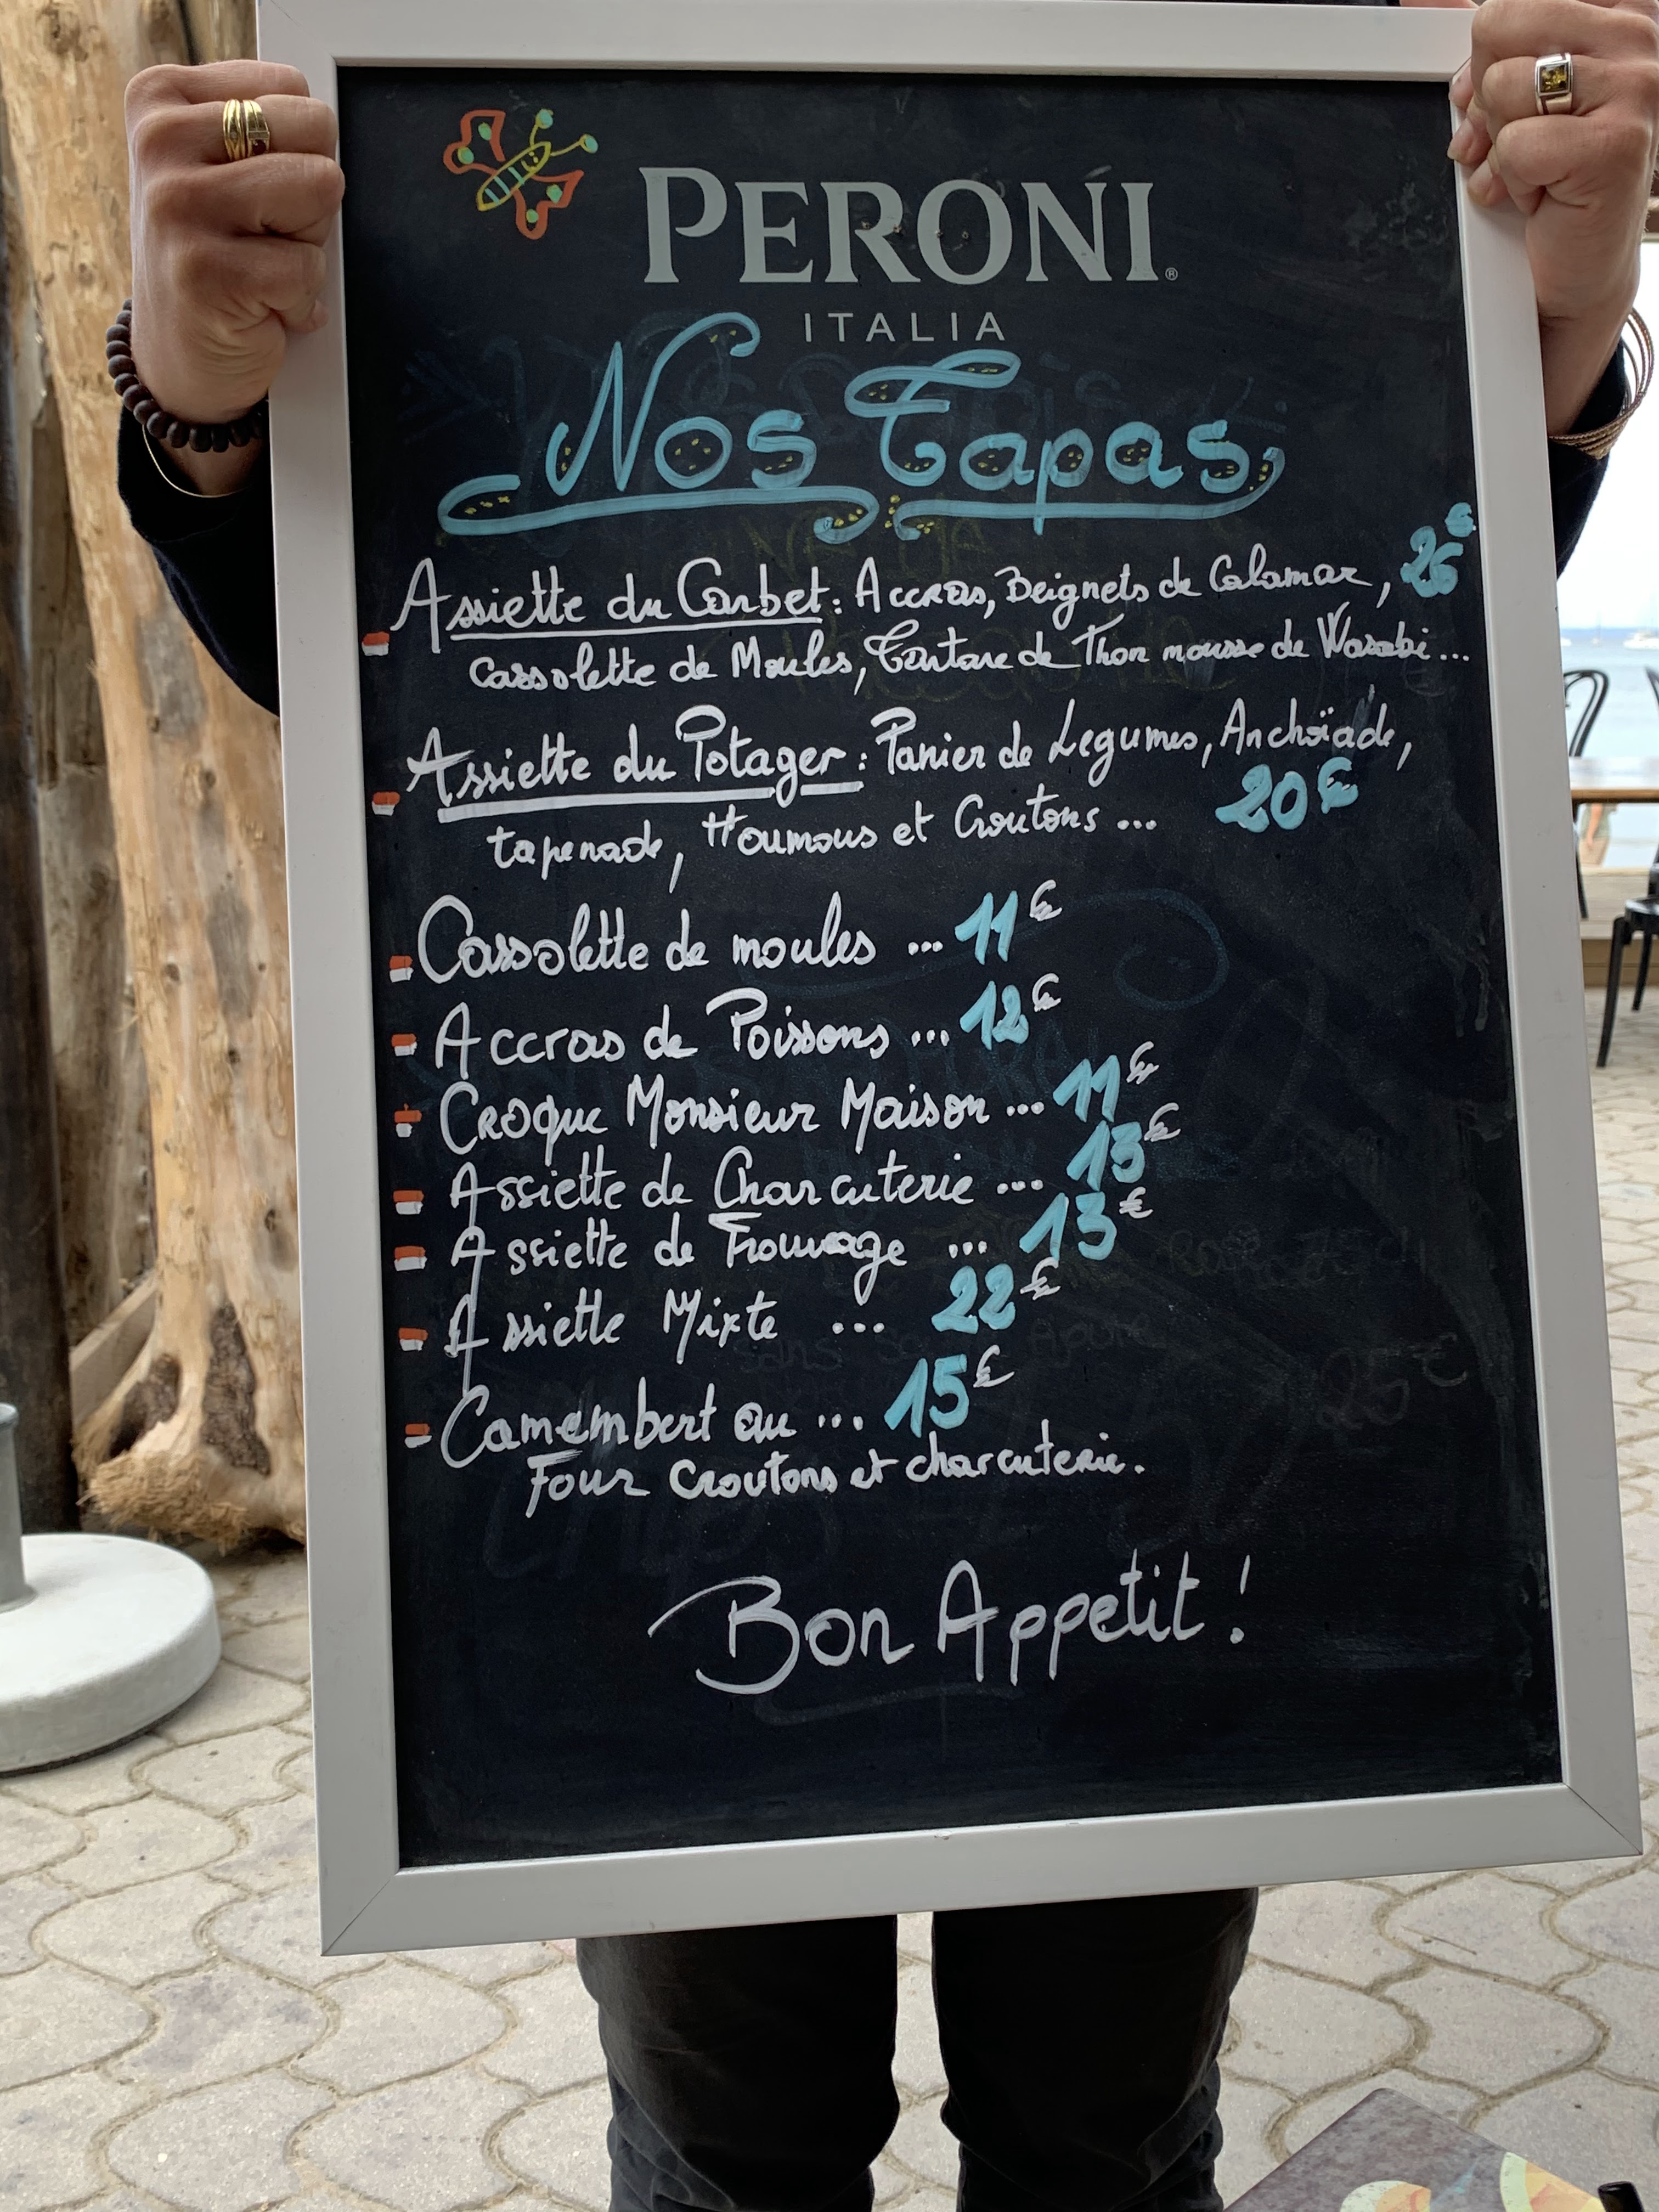 PERONI®
ITALIA
Nos Tapas
Assiette du Carbet : Accras, Beignets de Calamar, 26€
Cassolette de Moules, Tartare de Thon mousse de Wasabi...
Assiette du Potager : Panier de Legumes, Anchoïade,
tapenade, Houmous et Croutons ... 20€
Cassolette de moules ... 11€
Accras de Poissons ... 12€
Croque Monsieur Maison ... 11€
Assiette de Charcuterie ... 13€
Assiette de Fromage ... 13€
Assiette Mixte ... 22€
Camembert au ... 15€
Four Croutons et charcuterie.
Bon Appetit !